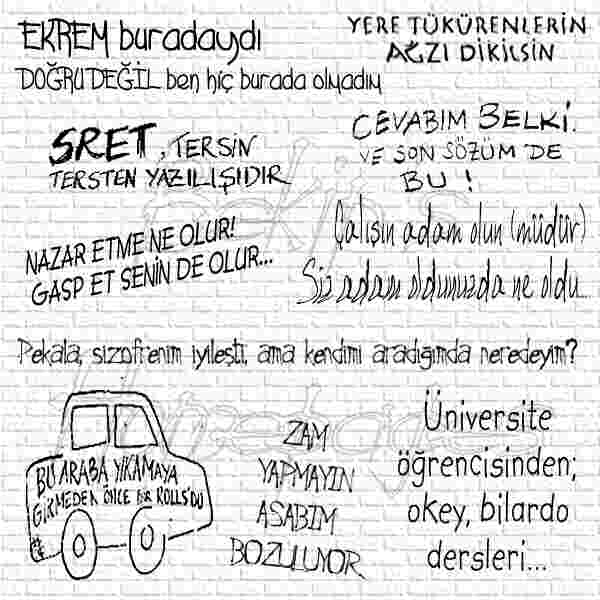 EKREM buradaydı
DOĞRU DEĞİL ben hiç burada olmadım
YERE TÜKÜRENLERİN
AĞZI DİKİLSİN
SRET, TERSİN
TERSTEN YAZILIŞIDIR
CEVABIM BELKİ.
VE SON SÖZÜM DE
BU !
NAZAR ETME NE OLUR!
GASP ET SENİN DE OLUR...
Çalışın adam olun (müdür)
Siz adam oldunuzda ne oldu...
Pekala, şizofrenim iyileşti, ama kendimi aradığımda neredeyim?
BU ARABA YIKAMAYA
GİRMEDEN ÖNCE BİR ROLLS'DU
ZAM
YAPMAYIN
ASABIM
BOZULUYOR
Üniversite
öğrencisinden;
okey, bilardo
dersleri...